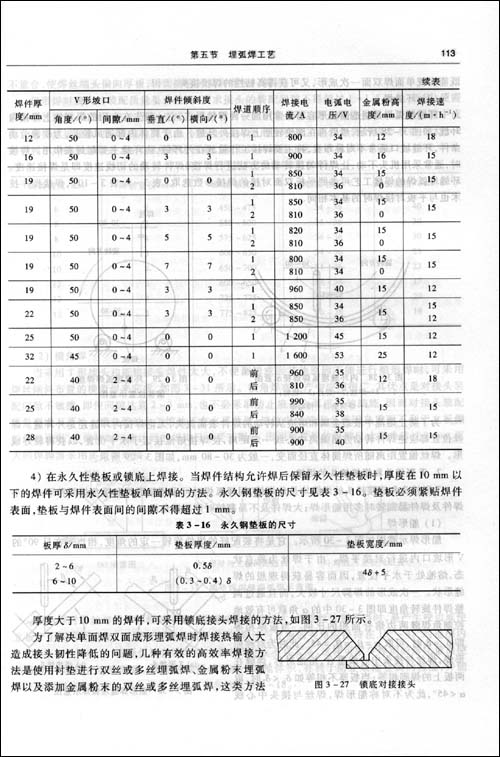 第五节 埋弧焊工艺 113
续表
焊件厚度/mm V形坡口 焊件倾斜度 焊道顺序 焊接电流/A 电弧电压/V 金属粉高度/mm 焊接速度/(m·h⁻¹)
角度/(°) 间隙/mm 垂直/(°) 横向/(°)
12 50 0~4 0 0 1 800 34 12 18
16 50 0~4 3 3 1 900 34 16 15
19 50 0~4 0 0 1 850 34 15 15
2 810 36 0
19 50 0~4 3 3 1 850 34 15 15
2 810 36 0
19 50 0~4 5 5 1 820 34 15 15
2 810 36 0
19 50 0~4 7 7 1 800 34 15 15
2 810 34 0
19 50 0~4 3 3 1 960 40 15 12
22 50 0~4 3 3 1 850 34 15 15
2 850 36 12
25 50 0~4 0 0 1 1 200 45 15 12
32 45 0~4 0 0 1 1 600 53 25 12
22 40 2~4 0 0 前 960 35 12 18
后 810 36
25 40 2~4 0 0 前 990 35 15 15
后 840 38
28 40 2~4 0 0 前 900 35 15 15
后 900 40
4) 在永久性垫板或锁底上焊接。当焊件结构允许焊后保留永久性垫板时,厚度在10 mm以
下的焊件可采用永久性垫板单面焊的方法。永久钢垫板的尺寸见表3-16。垫板必须紧贴焊件
表面,垫板与焊件表面间的间隙不得超过1 mm。
表3-16 永久钢垫板的尺寸
板厚δ/mm 垫板厚度/mm 垫板宽度/mm
2~6 0.5δ 4δ+5
6~10 (0.3~0.4)δ
厚度大于10 mm的焊件,可采用锁底接头焊接的方法,如图3-27所示。
为了解决单面焊双面成形埋弧焊时焊接热输入大
造成接头韧性降低的问题,几种有效的高效率焊接方
法是使用衬垫进行双丝或多丝埋弧焊、金属粉末埋弧
焊以及添加金属粉末的双丝或多丝埋弧焊,这类方法
图3-27 锁底对接接头